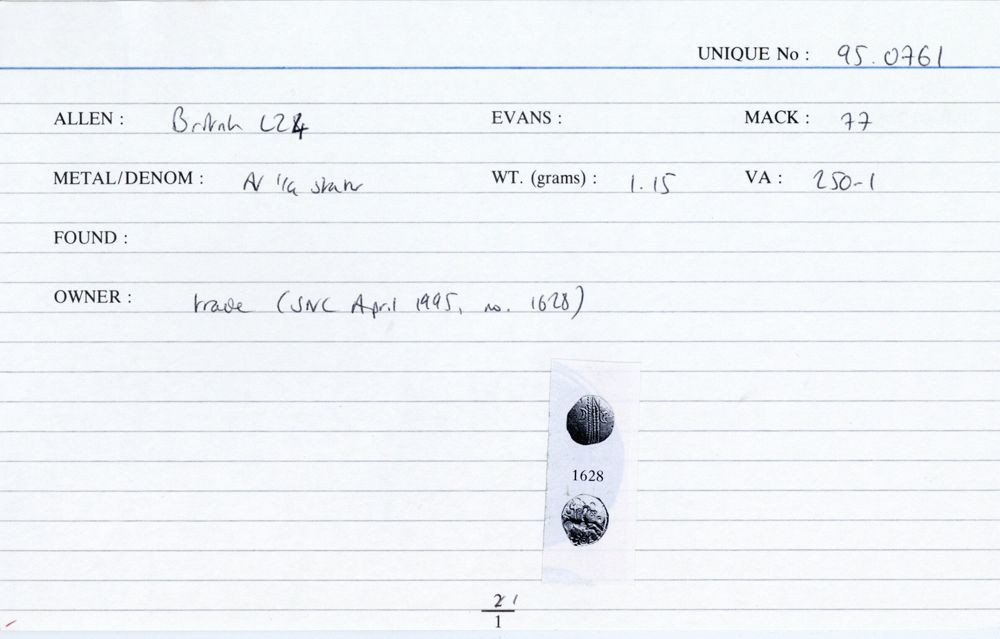 UNIQUE No : 95.0761
ALLEN : British L24 EVANS : MACK : 77
METAL/DENOM : AV 1/4 stater WT. (grams) : 1.15 VA : 250-1
FOUND :
OWNER : trade (SNC April 1995, no. 1628)
1628
21
1